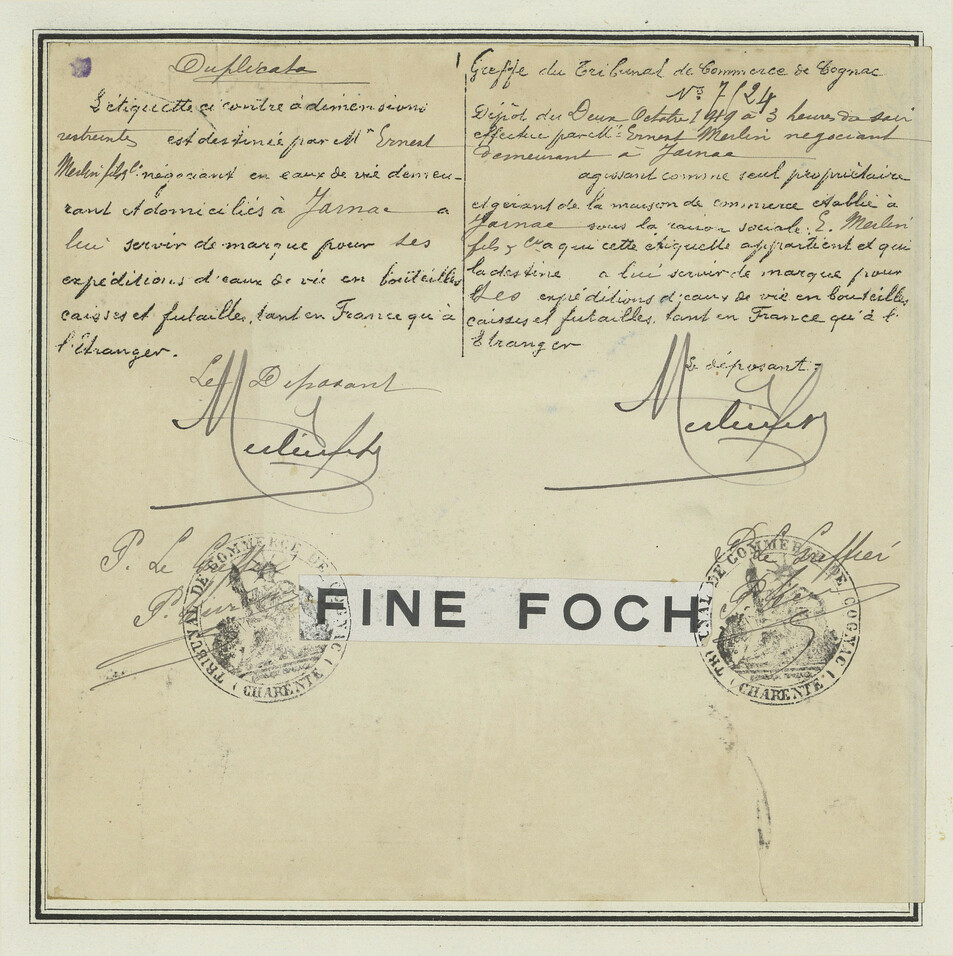 Duplicata
L'étiquette ci contre à dimensions
restreintes est destinée par Mr Ernest
Merlin fils négociant en eaux de vie demeu-
rant et domiciliés à Jarnac a
lui servir de marque pour ses
expéditions d'eaux de vie en bouteilles
caisses et futailles, tant en France qu'à
l'Etranger.
Le Déposant
Merlin fils
P. Le
P.
Greffe du Tribunal de Commerce de Cognac
No 7/24
Dépôt du Deux Octobre 1919 à 3 heures du soir
effectué par Mr Ernest Merlin négociant
demeurant à Jarnac
agissant comme seul propriétaire
et gérant de la maison de commerce établie à
Jarnac sous la raison sociale: E. Merlin
fils & Cie a qui cette étiquette appartient et qui
la destine a lui servir de marque pour
ses expéditions d'eaux de vie en bouteilles
caisses et futailles, tant en France qu'à l'
Etranger
Le déposant
Merlin fils
P. Le Greffier
FINE FOCH
TRIBUNAL DE COMMERCE DE COGNAC
(CHARENTE)
TRIBUNAL DE COMMERCE DE COGNAC
(CHARENTE)